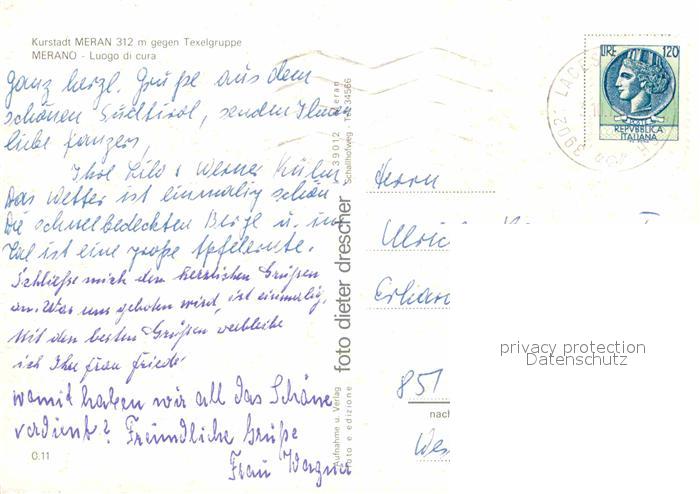 Kurstadt MERAN 312 m gegen Texelgruppe
MERANO - Luogo di cura
ganz herzl. Grüße aus dem
schönen Südtirol, senden Ihnen
liebe
Ihre Lilo & Werner Kühn
Das Wetter ist einmalig schön
Die schneebedeckten Berge u. im
Tal ist eine große Apfelernte.
Schließe mich den herzlichen Grüßen
an. Was uns geboten wird, ist einmalig.
Mit den besten Grüßen verbleibe
ich Ihre Frau Friede
womit haben wir all das Schöne
verdient? Freundliche Grüße
Frau Wagner
0.11
foto dieter drescher
I-39012 Meran
Schallhofweg · Tel. 34566
Aufnahme u. Verlag
foto e edizione
LIRE 120
POSTE
REPVBBLICA
ITALIANA
3902
Herrn
Ulric
Erlan
851
nach
privacy protection
Datenschutz